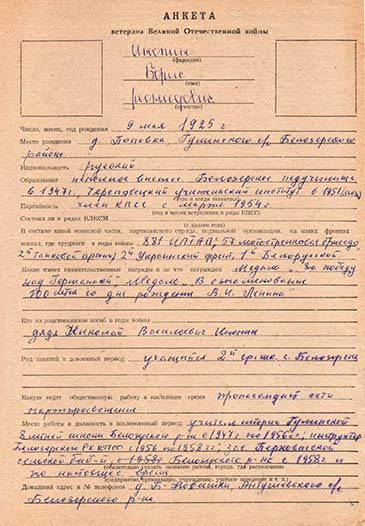 АНКЕТА
ветерана Великой Отечественной войны
(фамилия)
Борис
(имя)
(отчество)
Число, месяц, год рождения 9 мая 1925 г
Место рождения д. Поповка, Гулинского с/с Белозерского
района
Национальность русский
Образование неполное высшее. Белозерское педучилище
в 1947 г. Череповецкий учительский институт в 1951
(что и когда закончил)
Партийность член КПСС с марта 1954 г
(год и месяц вступления в ряды КПСС)
Состоял ли в рядах ВЛКСМ
(с какого года)
В составе какой воинской части, партизанского отряда, подпольной организации, на каких фронтах
воевал, где трудился в годы войны 881 ИПТАП; 57 мотострелковая бригада
2ой танковой армии, 2ой Украинский фронт, 1ый Белорусский
Какие имеет правительственные награды и за что награжден Медаль "За победу
над Германией", Медаль "В ознаменование
100 летия со дня рождения В. И. Ленина"
Кто из родственников погиб в годы войны
дядя Николай Васильевич
Род занятий в довоенный период учащийся 2ой ср. шк. г. Белозерска
Какую ведет общественную работу в настоящее время пропагандист сети
партпросвещения
Место работы и должность в послевоенный период учитель истории Гулинской
8 летней школы Белозерского р-на с 1947 г. по 1956 г.; инструктор
Белозерского РК КПСС с 1956 по 1958 гг; зав.
сельской биб-й с 1958 г Белозерского р-на с 1958 г и
по настоящее время
(обязательно указать название района, города, где расположены
предприятие, организация, учреждение, учебное заведение и т. п.)
Домашний адрес и № телефона д. Б-Новишки, Антушевского с/с
Белозерского р-на.